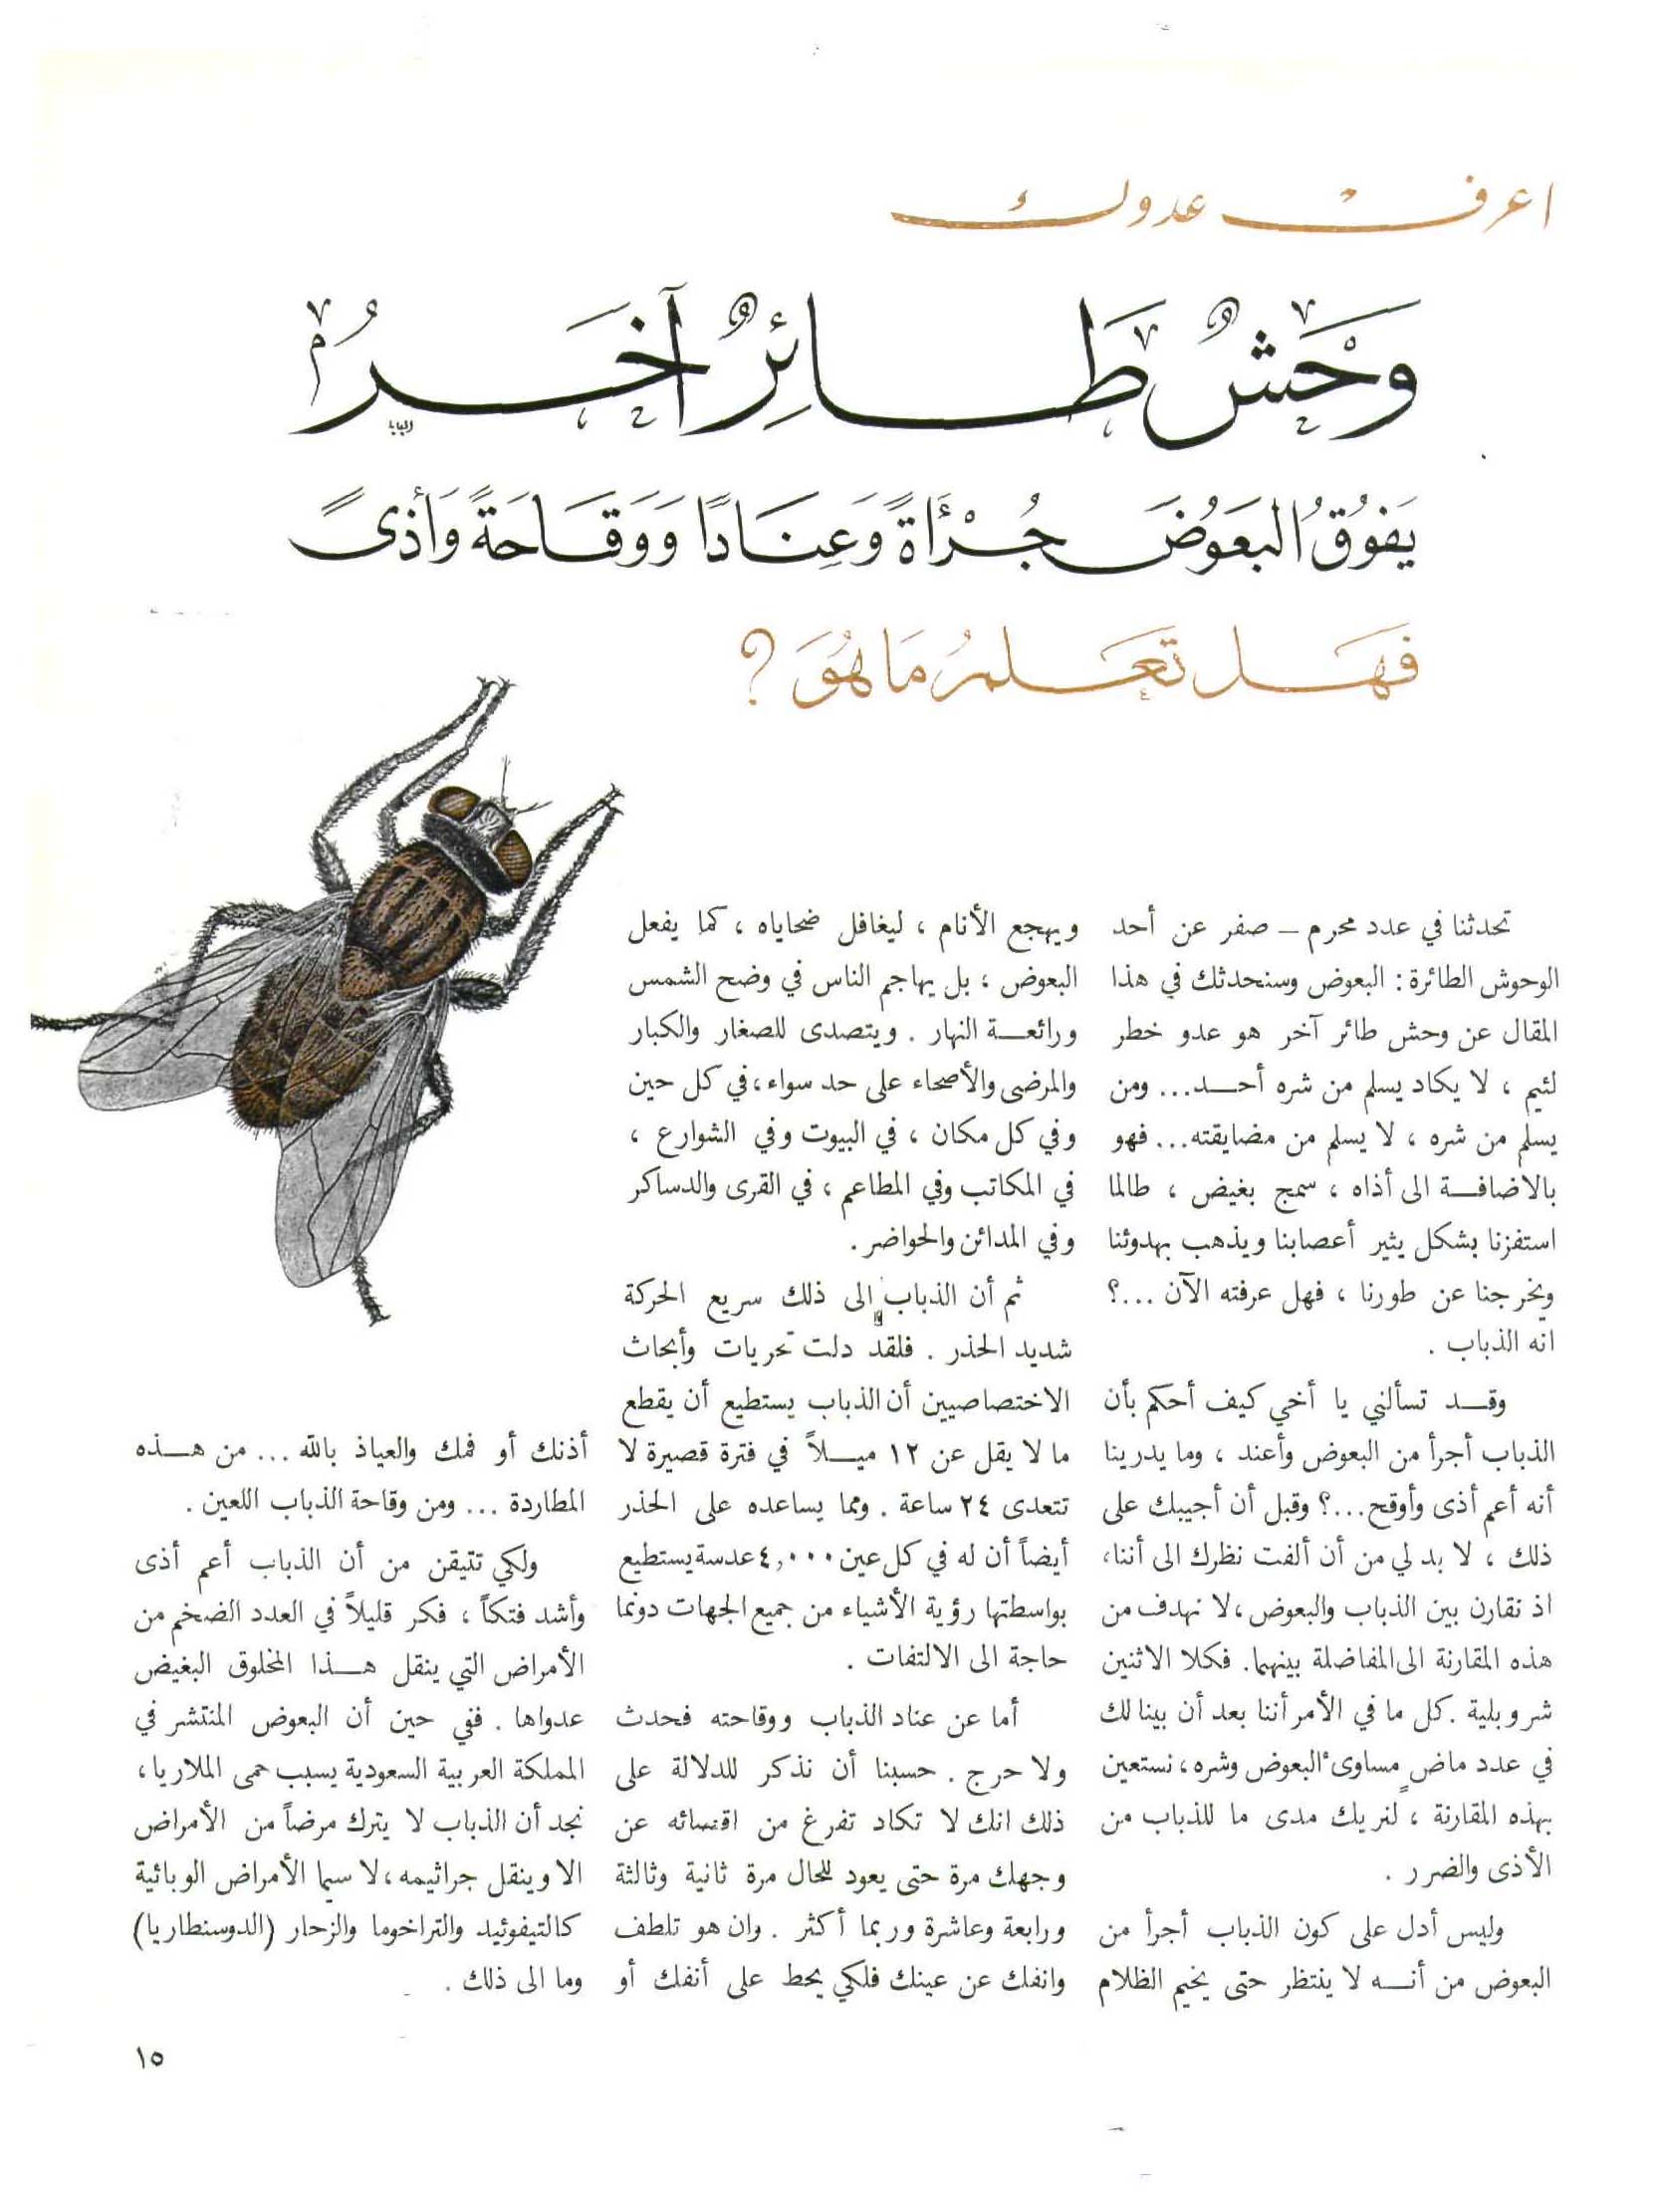 اعرف عدوك
وَحْشٌ طَائِرٌ آخَرُ
البابا
يَفُوُقُ البَعَوُضَ جُرْأَةً وَعِنَادًا وَوَقَاحَةً وَأَذىً
فَهَل تَعَلمُ مَا هُوَ؟
تحدثنا في عدد محرم – صفر عن أحد
الوحوش الطائرة: البعوض وسنحدثك في هذا
المقال عن وحش طائر آخر هو عدو خطر
لئيم ، لا يكاد يسلم من شره أحد... ومن
يسلم من شره ، لا يسلم من مضايقته... فهو
بالاضافة الى أذاه ، سمج بغيض ، طالما
استفزنا بشكل يثير أعصابنا ويذهب بهدوئنا
ويخرجنا عن طورنا ، فهل عرفته الآن ...؟
انه الذباب .
وقد تسألني يا أخي كيف أحكم بأن
الذباب أجرأ من البعوض وأعند ، وما يدرينا
أنه أعم أذى وأوقح...؟ وقبل أن أجيبك على
ذلك ، لا بد لي من أن ألفت نظرك الى أننا،
اذ نقارن بين الذباب والبعوض ،لا نهدف من
هذه المقارنة الى المفاضلة بينهما. فكلا الاثنين
شر وبلية .كل ما في الأمر أننا بعد أن بينا لك
في عدد ماضٍ مساوىء البعوض وشره، نستعين
بهذه المقارنة ، لنريك مدى ما للذباب من
الأذى والضرر .
وليس أدل على كون الذباب أجرأ من
البعوض من أنه لا ينتظر حتى يخيم الظلام
ويهجع الأنام ، ليغافل ضحاياه ، كما يفعل
البعوض ، بل يهاجم الناس في وضح الشمس
ورائعة النهار . ويتصدى للصغار والكبار
والمرضى والأصحاء على حد سواء،في كل حين
وفي كل مكان ، في البيوت وفي الشوارع ،
في المكاتب وفي المطاعم ، في القرى والدساكر
وفي المدائن والحواضر .
ثم أن الذباب إلى ذلك سريع الحركة
شديد الحذر . فلقد دلت تحريات وأبحاث
الاختصاصيين أن الذباب يستطيع أن يقطع
ما لا يقل عن ١٢ ميلاً في فترة قصيرة لا
تتعدى ٢٤ ساعة . ومما يساعده على الحذر
أيضاً أن له في كل عين ٤,٠٠٠ عدسة يستطيع
بواسطتها رؤية الأشياء من جميع الجهات دونما
حاجة الى الالتفات .
أما عن عناد الذباب ووقاحته فحدث
ولا حرج . حسبنا أن نذكر للدلالة على
ذلك انك لا تكاد تفرغ من اقصائه عن
وجهك مرة حتى يعود للحال مرة ثانية وثالثة
ورابعة وعاشرة وربما أكثر . وان هو تلطف
وانفك عن عينك فلكي يحط على أنفك أو
أذنك أو فمك والعياذ بالله ... من هذه
المطاردة ... ومن وقاحة الذباب اللعين .
ولكي تتيقن من أن الذباب أعم أذى
وأشد فتكاً ، فكر قليلاً في العدد الضخم من
الأمراض التي ينقل هذا المخلوق البغيض
عدواها . ففي حين أن البعوض المنتشر في
المملكة العربية السعودية يسبب حمى الملاريا،
نجد أن الذباب لا يترك مرضاً من الأمراض
الا وينقل جراثيمه، لا سيما الأمراض الوبائية
كالتيفوئيد والتراخوما والزحار (الدوسنطاريا)
وما الى ذلك .
١٥